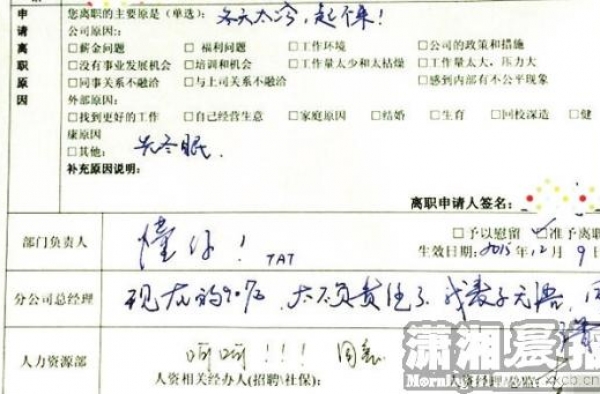 您离职的主要原是(单选): 冬天太冷,起不来!
申请离职原因
公司原因:
□薪金问题 □福利问题 □工作环境 □公司的政策和措施
□没有事业发展机会 □培训和机会 □工作量太少和太枯燥 □工作量太大,压力大
□同事关系不融洽 □与上司关系不融洽 □感到内部有不公平现象
外部原因:
□找到更好的工作 □自己经营生意 □家庭原因 □结婚 □生育 □回校深造 □健
康原因
□其他: 去冬眠.
补充原因说明:
离职申请人签名:
部门负责人 懂你! TAT
□予以慰留 □准予离职
生效日期:2015年12月9日
分公司总经理 现在的90后,太不负责任了,我表示无语,同
人力资源部 呵呵!!! 同意
人资相关经办人(招聘\社保): 人资经理
潇湘晨报